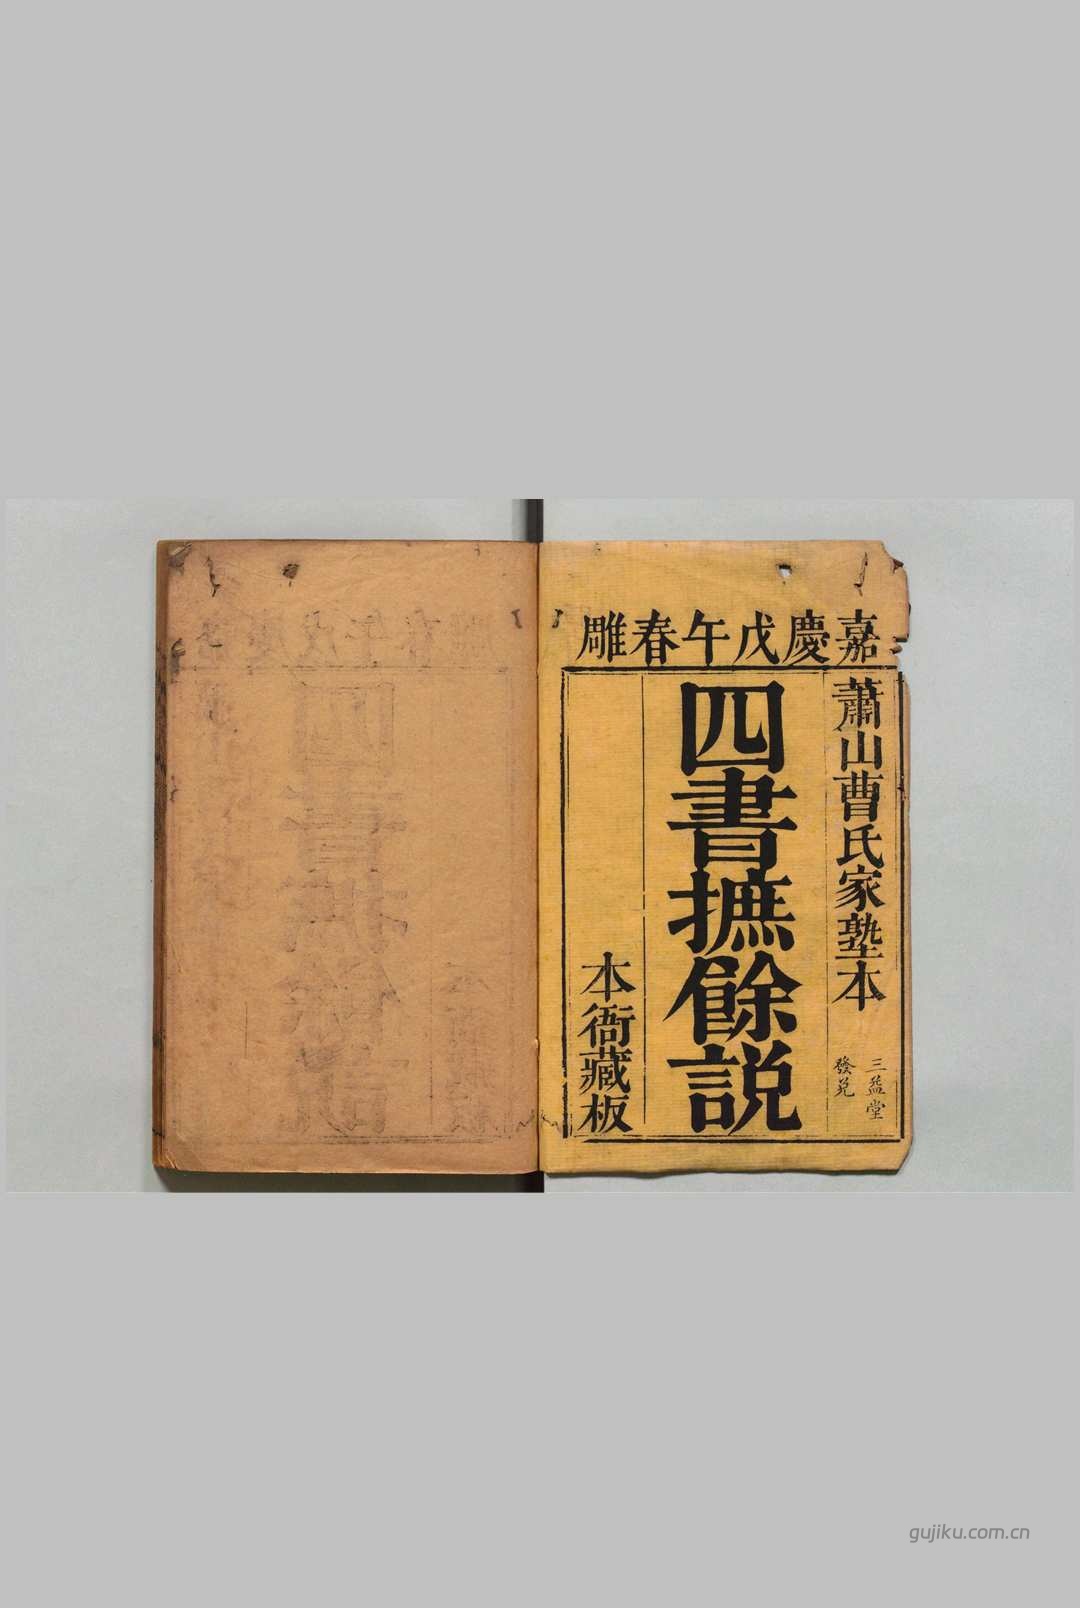 嘉慶戊午春雕
蕭山曹氏家塾本
三益堂
發兌
四書摭餘説
本衙藏板
gujiku.com.cn